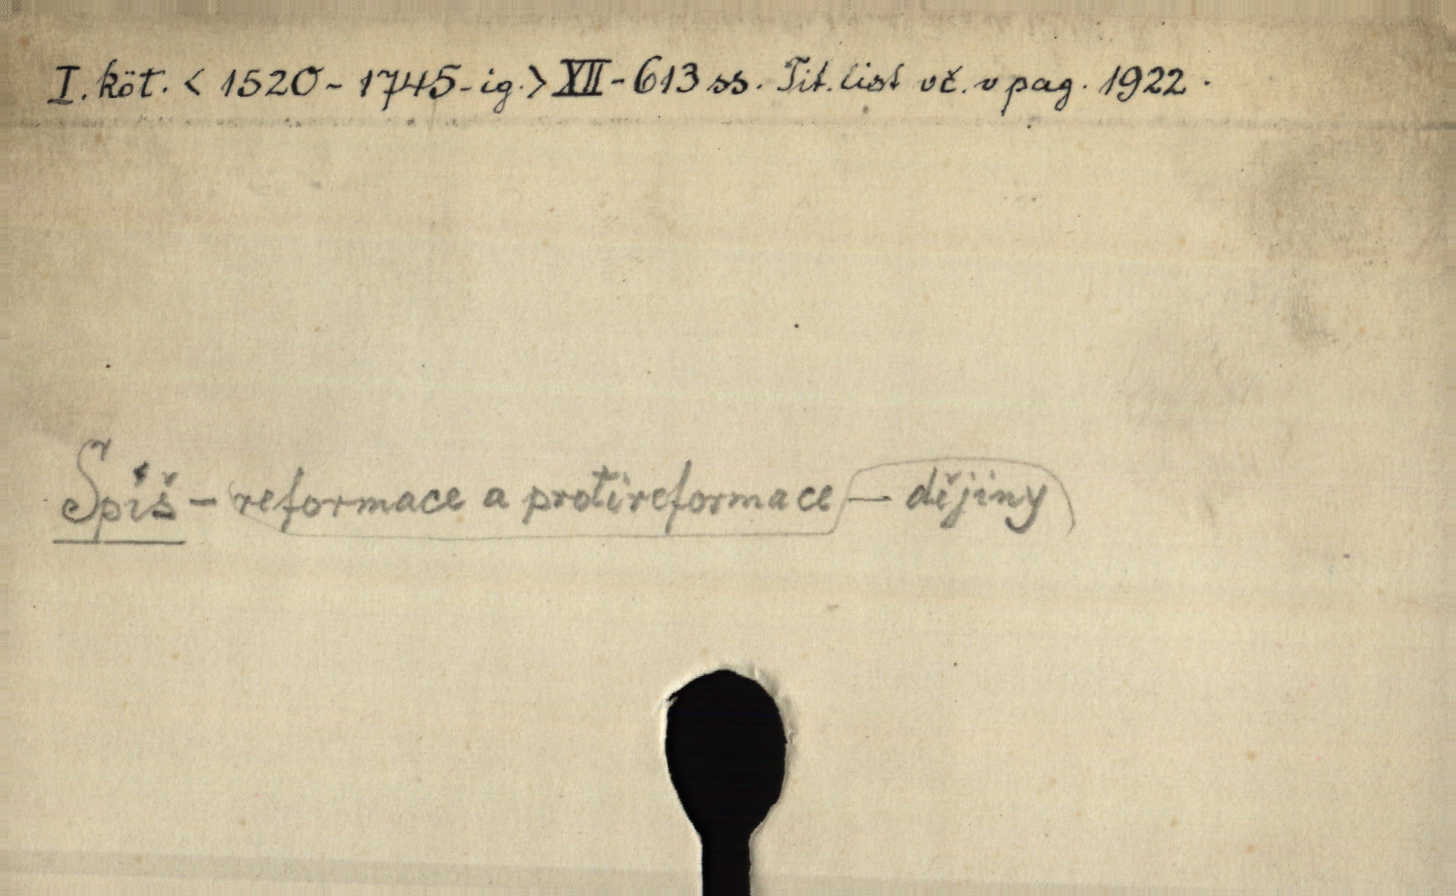 I. köt. < 1520 - 1745-ig. > XII - 613 ss. Tit. list vč. v pag. 1922.
Spiš - reformace a protireformace - dějiny